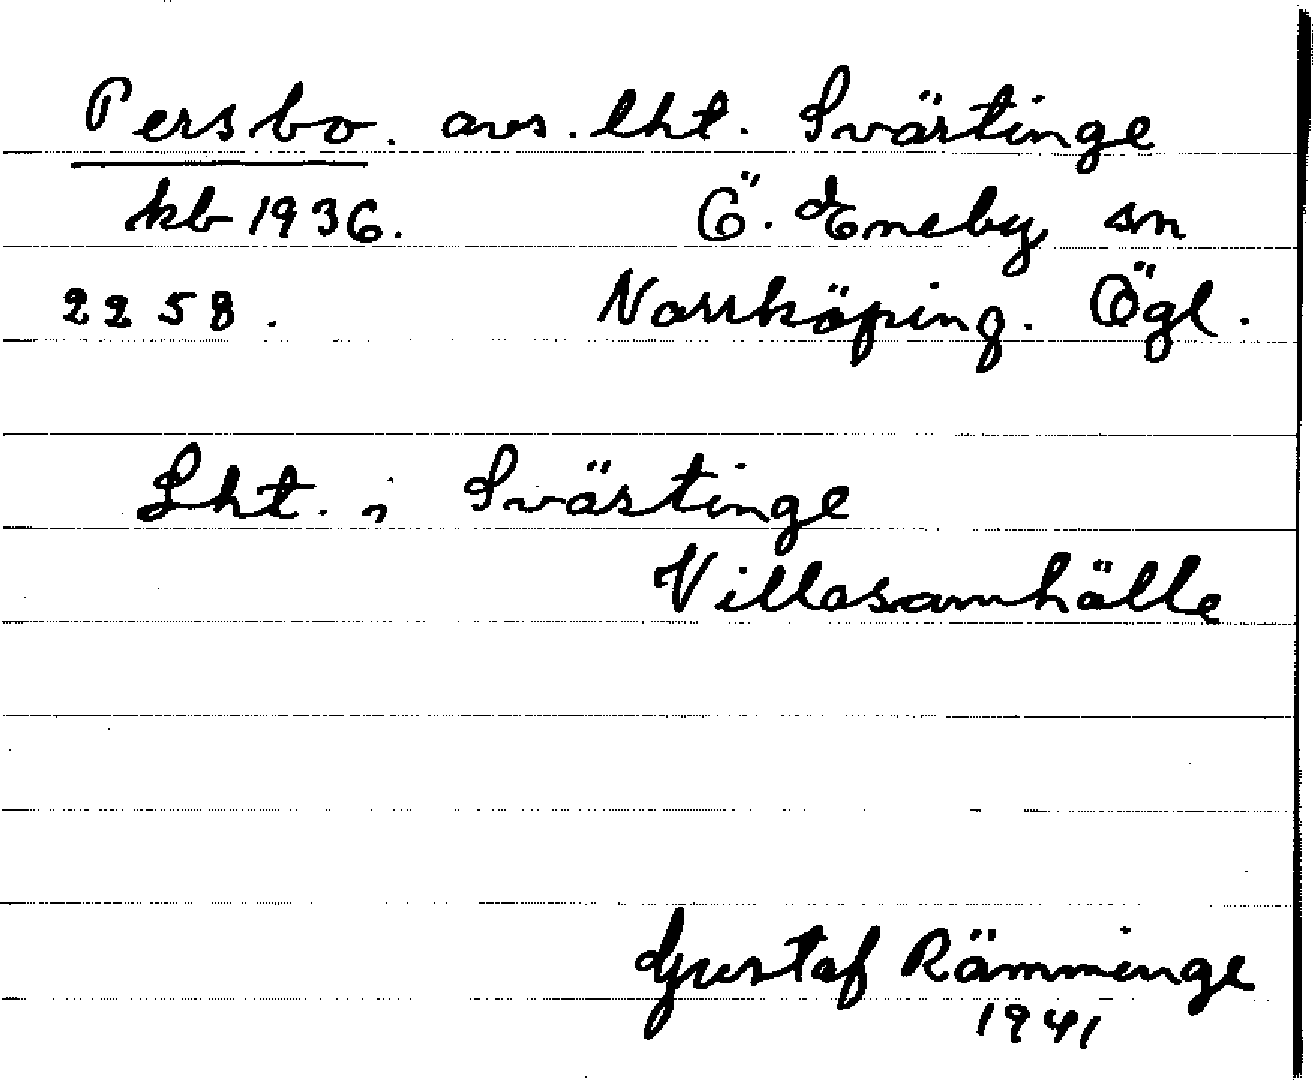 Persbo. avs. lht. Svärtinge
kb 1936. Ö. Eneby sn
2258. Norrköping. Ögl.
Lht. i Svärtinge
Villasamhälle
Gustaf Rämminge
1941